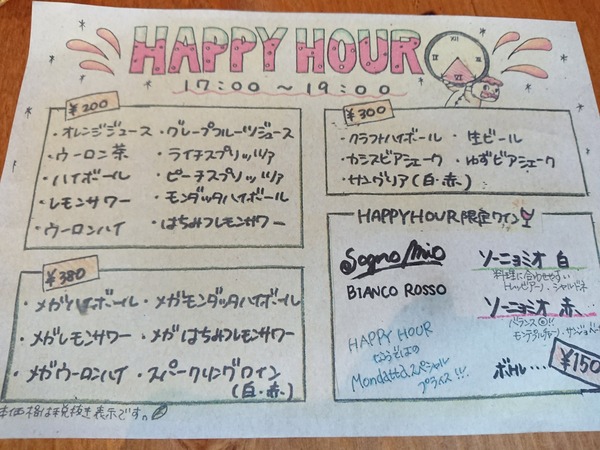 HAPPY HOUR
17:00 ～ 19:00
¥200
・オレンジジュース ・グレープフルーツジュース
・ウーロン茶 ・ライチスプリッツァ
・ハイボール ・ピーチスプリッツァ
・レモンサワー ・モンダッタハイボール
・ウーロンハイ ・はちみつレモンサワー
¥300
・クラフトハイボール ・生ビール
・カシスビアシェーク ・ゆずビアシェーク
・サングリア(白・赤)
¥380
・メガハイボール ・メガモンダッタハイボール
・メガレモンサワー ・メガはちみつレモンサワー
・メガウーロンハイ ・スパークリングワイン
(白・赤)
HAPPY HOUR限定ワイン
Sogno Mio
BIANCO ROSSO
ソーニョミオ 白
料理に合わせやすい
トレッビアーノ・シャルドネ
ソーニョミオ 赤
バランス◎!!
モンテプルチアーノ・サンジョ
HAPPY HOUR
ならではの
Mondatta スペシャル
プライス!!!
ボトル....
¥150
価格は税抜き表示です。